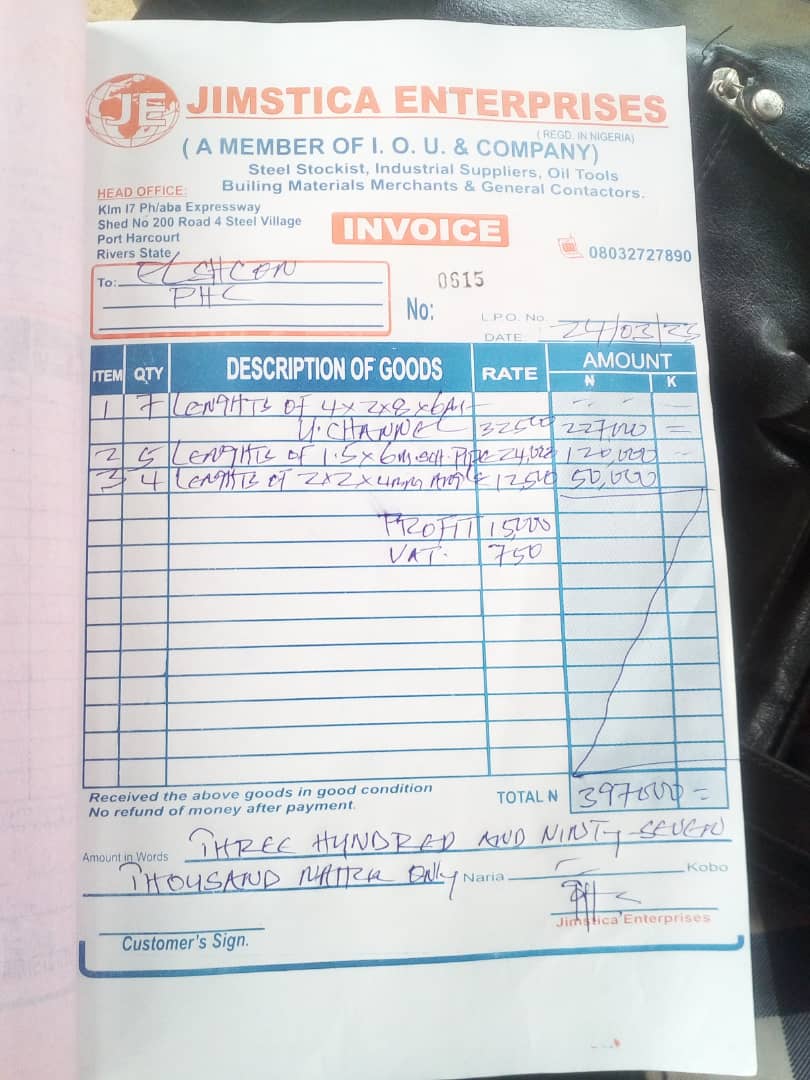 JE JIMSTICA ENTERPRISES
(REGD. IN NIGERIA)
(A MEMBER OF I. O. U. & COMPANY)
Steel Stockist, Industrial Suppliers, Oil Tools
Builing Materials Merchants & General Contactors.
HEAD OFFICE:
Klm I7 Ph/aba Expressway
Shed No 200 Road 4 Steel Village
Port Harcourt
Rivers State
INVOICE
08032727890
To: ELSHCON
PHC
No: 0615
L.P.O. No.
DATE 24/03/25
ITEM QTY DESCRIPTION OF GOODS RATE AMOUNT
N K
1 7 LENGHTS OF 4x2x8x6M
U. CHANNEL 32500 227000 =
2 5 LENGHTS OF 1.5x6m SCH. PIPE 24,000 120,000
3 4 LENGHTS OF 2x2x4mm ANGLE 12,500 50,000
PROFIT 15,000
VAT. 750
Received the above goods in good condition
No refund of money after payment.
TOTAL N 397000 =
Amount in Words THREE HUNDRED AND NINTY-SEVEN
THOUSAND NAIRA ONLY Naria Kobo
Jimstica Enterprises
Customer's Sign.